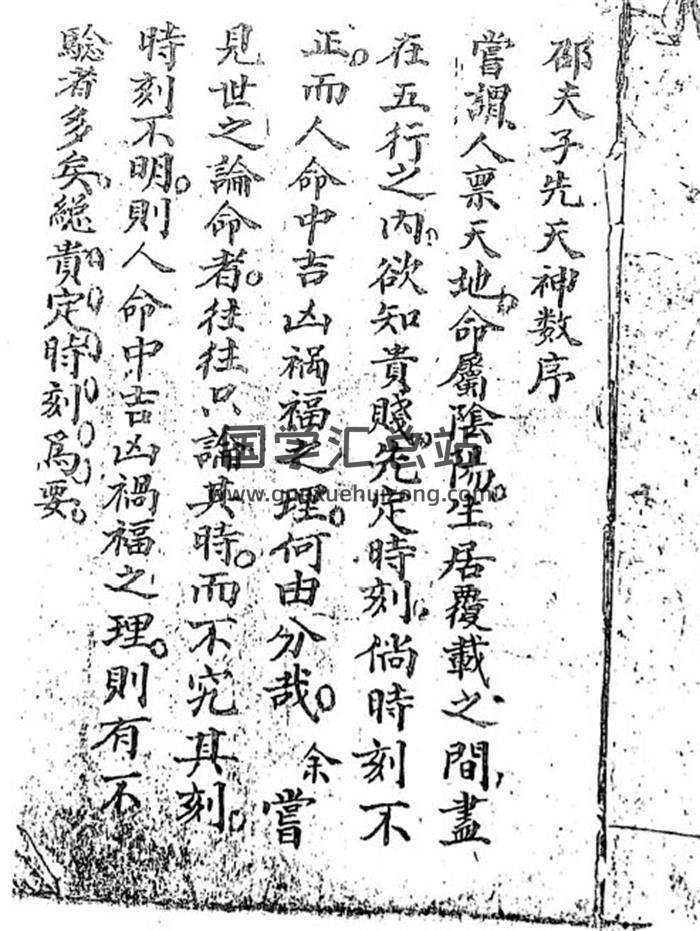 邵夫子先天神数序
嘗謂人禀天地。命屬陰陽。生居覆載之間,盡
在五行之内。欲知貴賤。先定時刻。倘時刻不
正。而人命中吉凶禍福之理。何由分哉。余嘗
見世之論命者。往往只論其時。而不究其刻。
時刻不明。則人命中吉凶禍福之理。則有不
驗者多矣。総貴定時刻爲要。
国学汇总站
www.guoxuehuizong.com